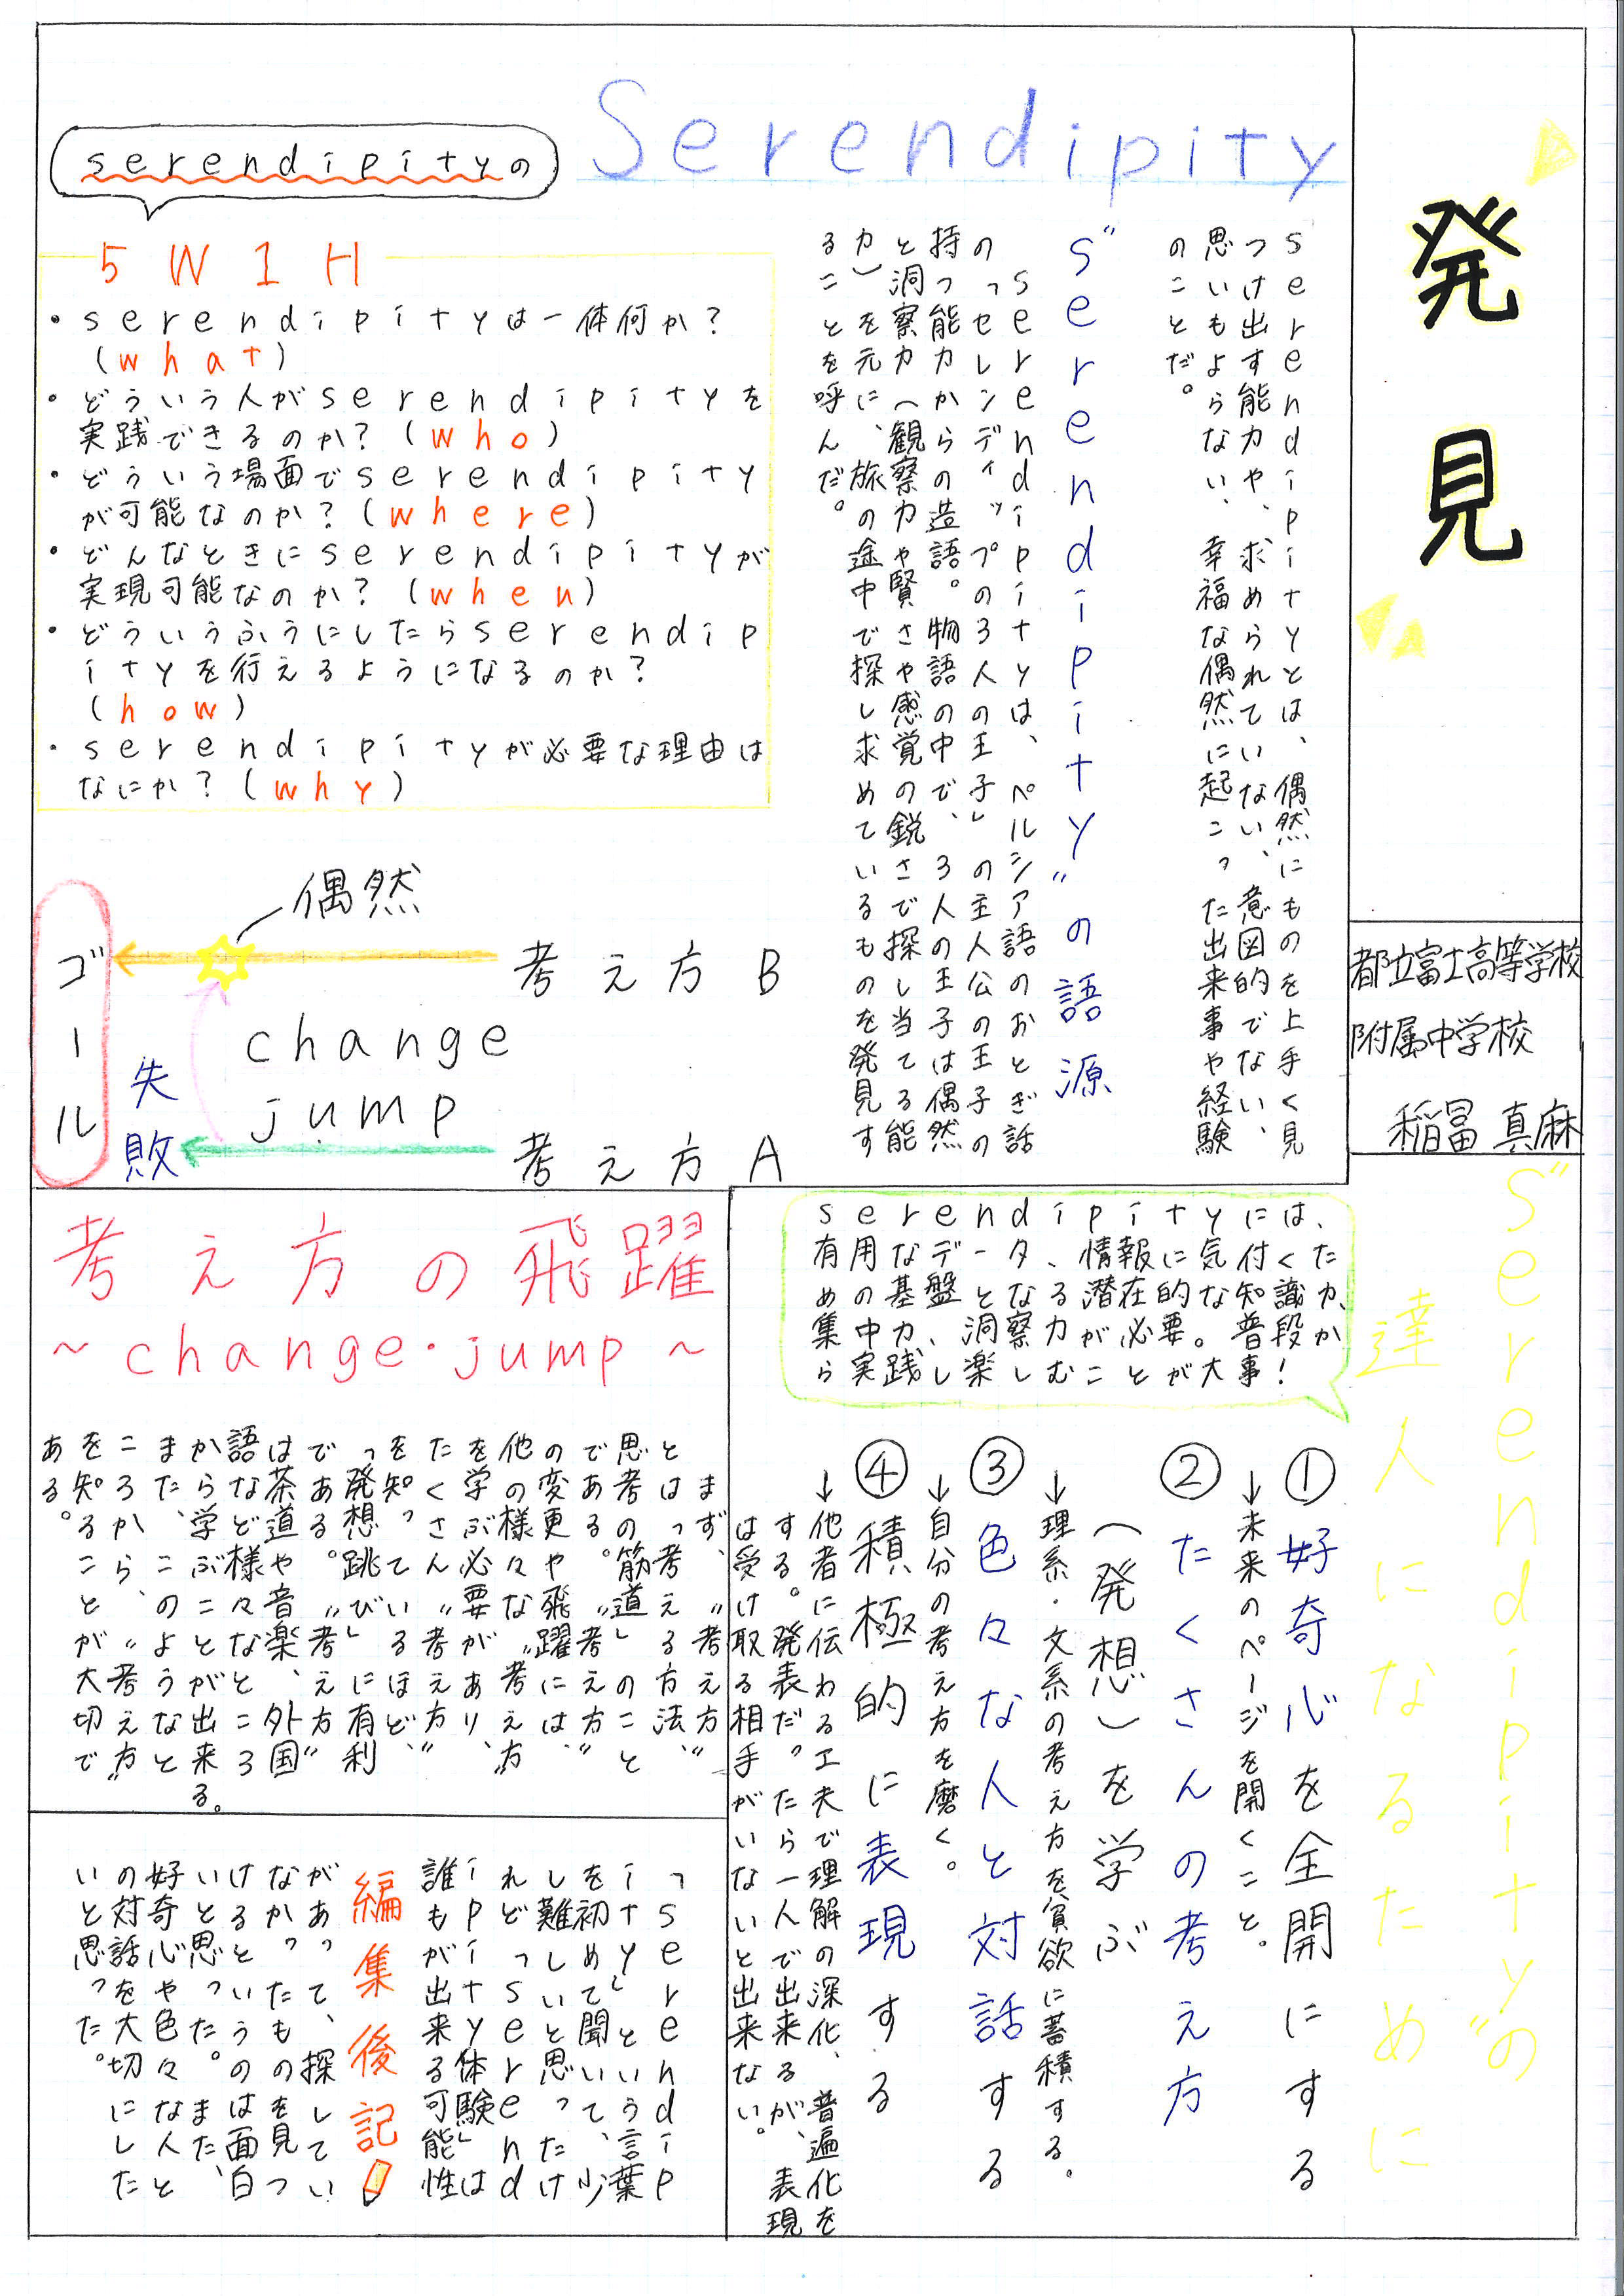 発見
都立富士高等学校
附属中学校
稲冨 真麻
Serendipity
serendipityとは、偶然にものを上手く見
つけ出す能力や、求められていない、意図的でない、
思いもよらない、幸福な偶然に起こった出来事や経験
のことだ。
"serendipity"の語源
serendipityは、ペルシア語のおとぎ話
の「セレンディップの3人の王子」の主人公の王子の
持つ能力からの造語。物語の中で、3人の王子は偶然
と洞察力(観察力や賢さや感覚の鋭さで探し当てる能
力)を元に、旅の途中で探し求めているものを発見す
ることを呼んだ。
serendipityの
5W1H
・serendipityは一体何か?
(what)
・どういう人がserendipityを
実践できるのか?(who)
・どういう場面でserendipity
が可能なのか?(where)
・どんなときにserendipityが
実現可能なのか?(when)
・どういうふうにしたらserendip
ityを行えるようになるのか?
(how)
・serendipityが必要な理由は
なにか?(why)
偶然
ゴール
考え方B
change
jump
失敗
考え方A
"serendipity"の
達人になるために
serendipityには、
有用なデータ、情報に気付くた
めの基盤となる潜在的な知識力、
集中力、洞察力が必要。普段か
ら実践し楽しむことが大事!
①好奇心を全開にする
→未来のページを開くこと。
②たくさんの考え方
(発想)を学ぶ
→理系・文系の考え方を貪欲に蓄積する。
③色々な人と対話する
→自分の考え方を磨く。
④積極的に表現する
→他者に伝わる工夫で理解の深化、普遍化を
する。発表だったら一人で出来るが、表現
は受け取る相手がいないと出来ない。
考え方の飛躍
~change・jump~
まず、"考え方"
とは「考える方法、"
思考の筋道」のこと
である。"考え方"
の変更や飛躍には、"
他の様々な"考え方"
を学ぶ必要があり、"
たくさん"考え方"
を知っているほど、
「発想跳び」に有利
である。"考え方"
は茶道や音楽、外国
語など様々なところ
から学ぶことが出来る。
また、このようなと
ころから、"考え方"
を知ることが大切で
ある。
「serendip
ity」という言葉
を初めて聞いて、少
し難しいと思ったけ
れどっserend
ipity体験」は
誰もが出来る可能性
編集後記
があって、探してい
なかったものを見つ
けるというのは面白
いと思った。また、
好奇心や色々な人と
の対話を大切にした
いと思った。